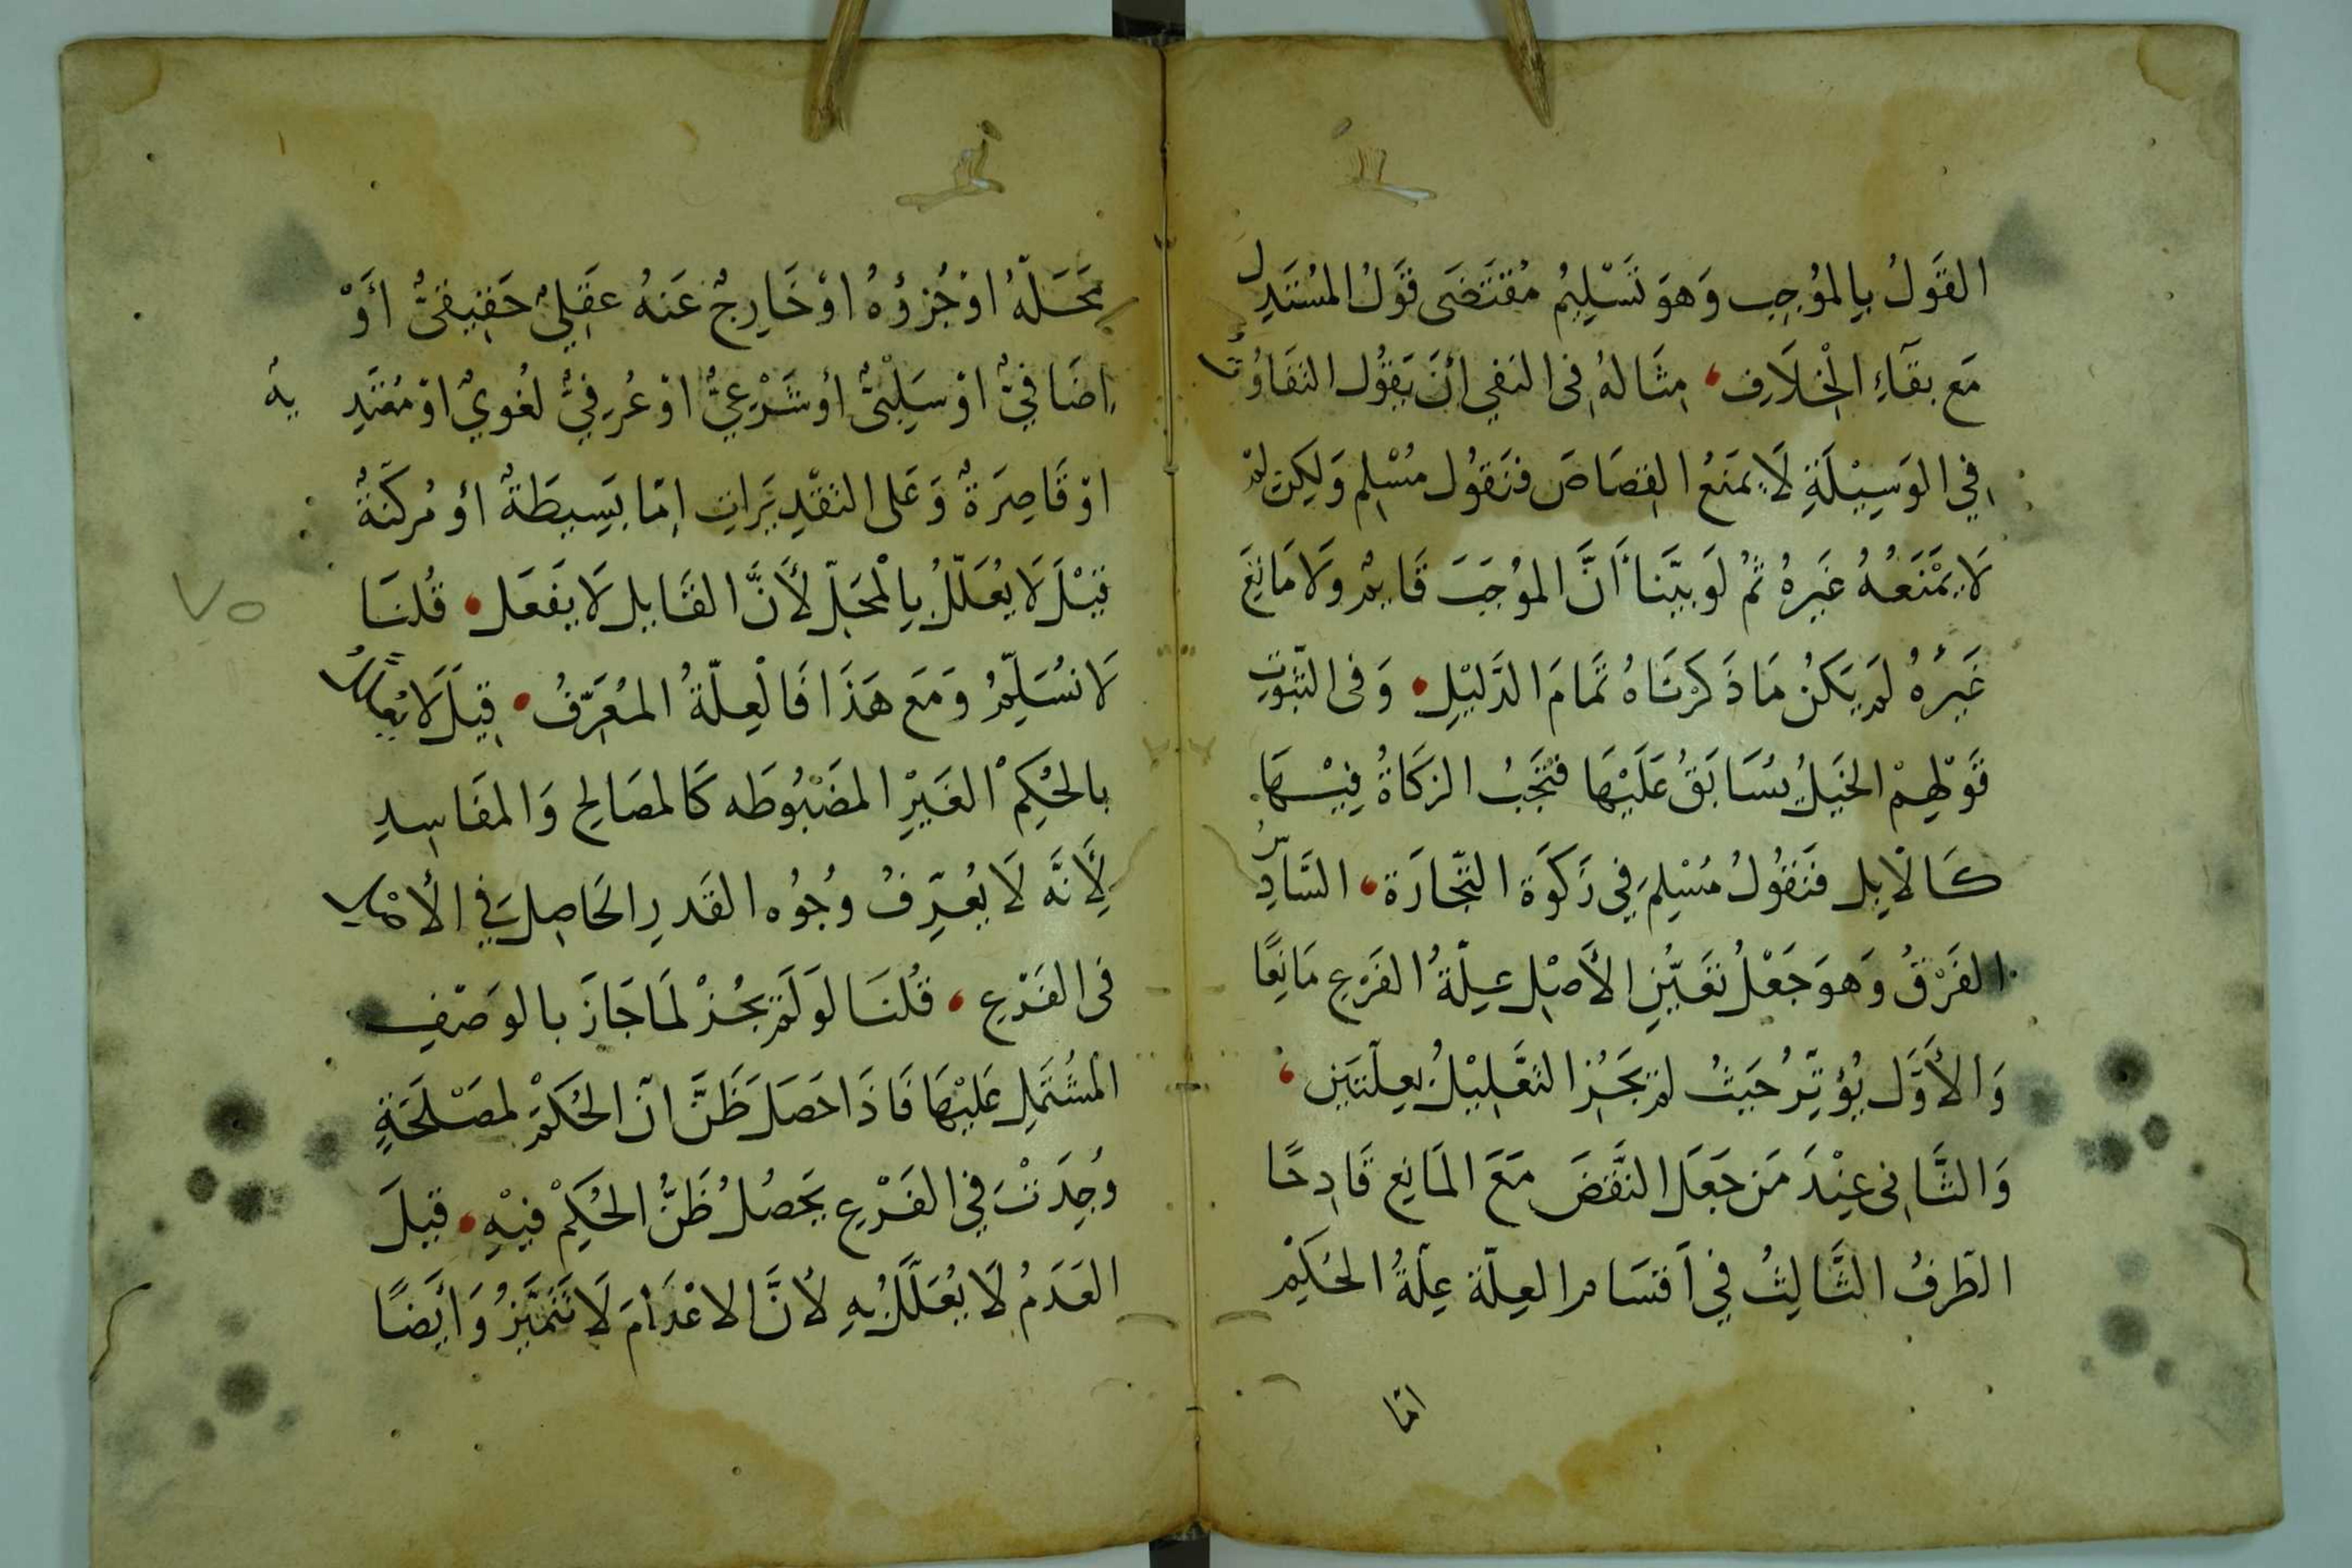 القَولُ بِالمُوجِب وَهوَ تَسْلِيمُ مُقتَضَى قَولُ المُسْتَدِلِّ
مَع بَقَآءِ الْخِلَافِ، مِثَالهُ فِى النَفي أَنْ يَقُول التَفَاوُتُ
فِي الوَسِيْلَةِ لَا يمنَعُ القِصَاصَ فنَقُول مُسْلم وَلكِن لِمْ
لَا يَمْنَعُهُ غَيرهُ ثمُ لَو بيَّنا أنَّ المُوجَبَ قَايِمٌ وَلَا مَانِعَ
غَيرُهُ لَم يَكنُ مَا ذَكَرْنَاهُ تَمَامَ الدَّليْلِ، وَفى الثبُوتِ
قَوْلهِمْ الخَيلُ يُسَابَقُ عَلَيْهَا فتَجِبُ الزَكَاةُ فِيْهَا
كَالاِبِل فنَقُولُ مُسْلمِ في زَكَوَة التّجَارَة، السَّادِسُ
الفَرْقُ وَهوَ جَعْلُ تَعَيُّنِ الأصْلِ عِلّةُ الفَرْعِ مَانِعًا
وَالأوَّل يُؤثِرُ حَيثُ لمْ يَجُز التَّعْلِيْلُ بِعلّتَيْنِ،
وَالثَّانِى عِنْدَ مَن جَعَلَ النَّقضَ مَعَ المَانِع قَادِحًا
الطَرفُ الثَّالِثُ فِي أقسَام العِلّة عِلّةُ الحُكِمْ
امّا
مَحَلّهُ اوْ جُزؤهُ اوْ خَارِجٌ عَنهُ عقَلِيٌ حَقِيقيٌّ أوْ
اِضَافيٌّ اوْ سَلِبْيٌّ أو شَرْعِيٌّ اوْ عُرفِيٌّ لغُويٌ اوْ مُتَعَدِيةٌ
اوْ قَاصِرَةٌ وَعَلى التقّدِيرَاتِ اِمّا بَسِيطَةٌ أو مُركبَةٌ
قِيْلَ لَا يُعَلّلُ بِالْمَحَلّ لأنَّ القَابِل لَا يَفعَل، قُلنَا
لَا نُسَلِّمُ وَمَع هَذَا فَالْعِلّةُ المُعَرِّفُ، قِيلَ لَا يُعَلّلُ
بالحُكِمْ الغَيرِ المضْبُوطَه كَالمصَالحِ وَالمفَاسِدِ
لِأنَّه لَا يُعرِّفُ وُجُوه القَدرِ الحَاصِل في الأصْل
فى الفَرْعِ، قُلنَا لَو لَم يجُزْ لمَا جَازَ بالوَصْفِ
المُشْتَمِلِ عَليْهَا فَاذَا حَصَلَ ظَنَّ انّ الحُكمْ لمصْلَحَةٍ
وُجِدَتْ في الفَرْعِ يَحصُلُ ظَنُّ الحُكِمْ فيْهِ، قيلَ
العَدَمُ لَا يُعَلّلُ بِهِ لأنَّ الاعْدَامَ لَا تَتَميَّزُ وَأيضًا
٧٥